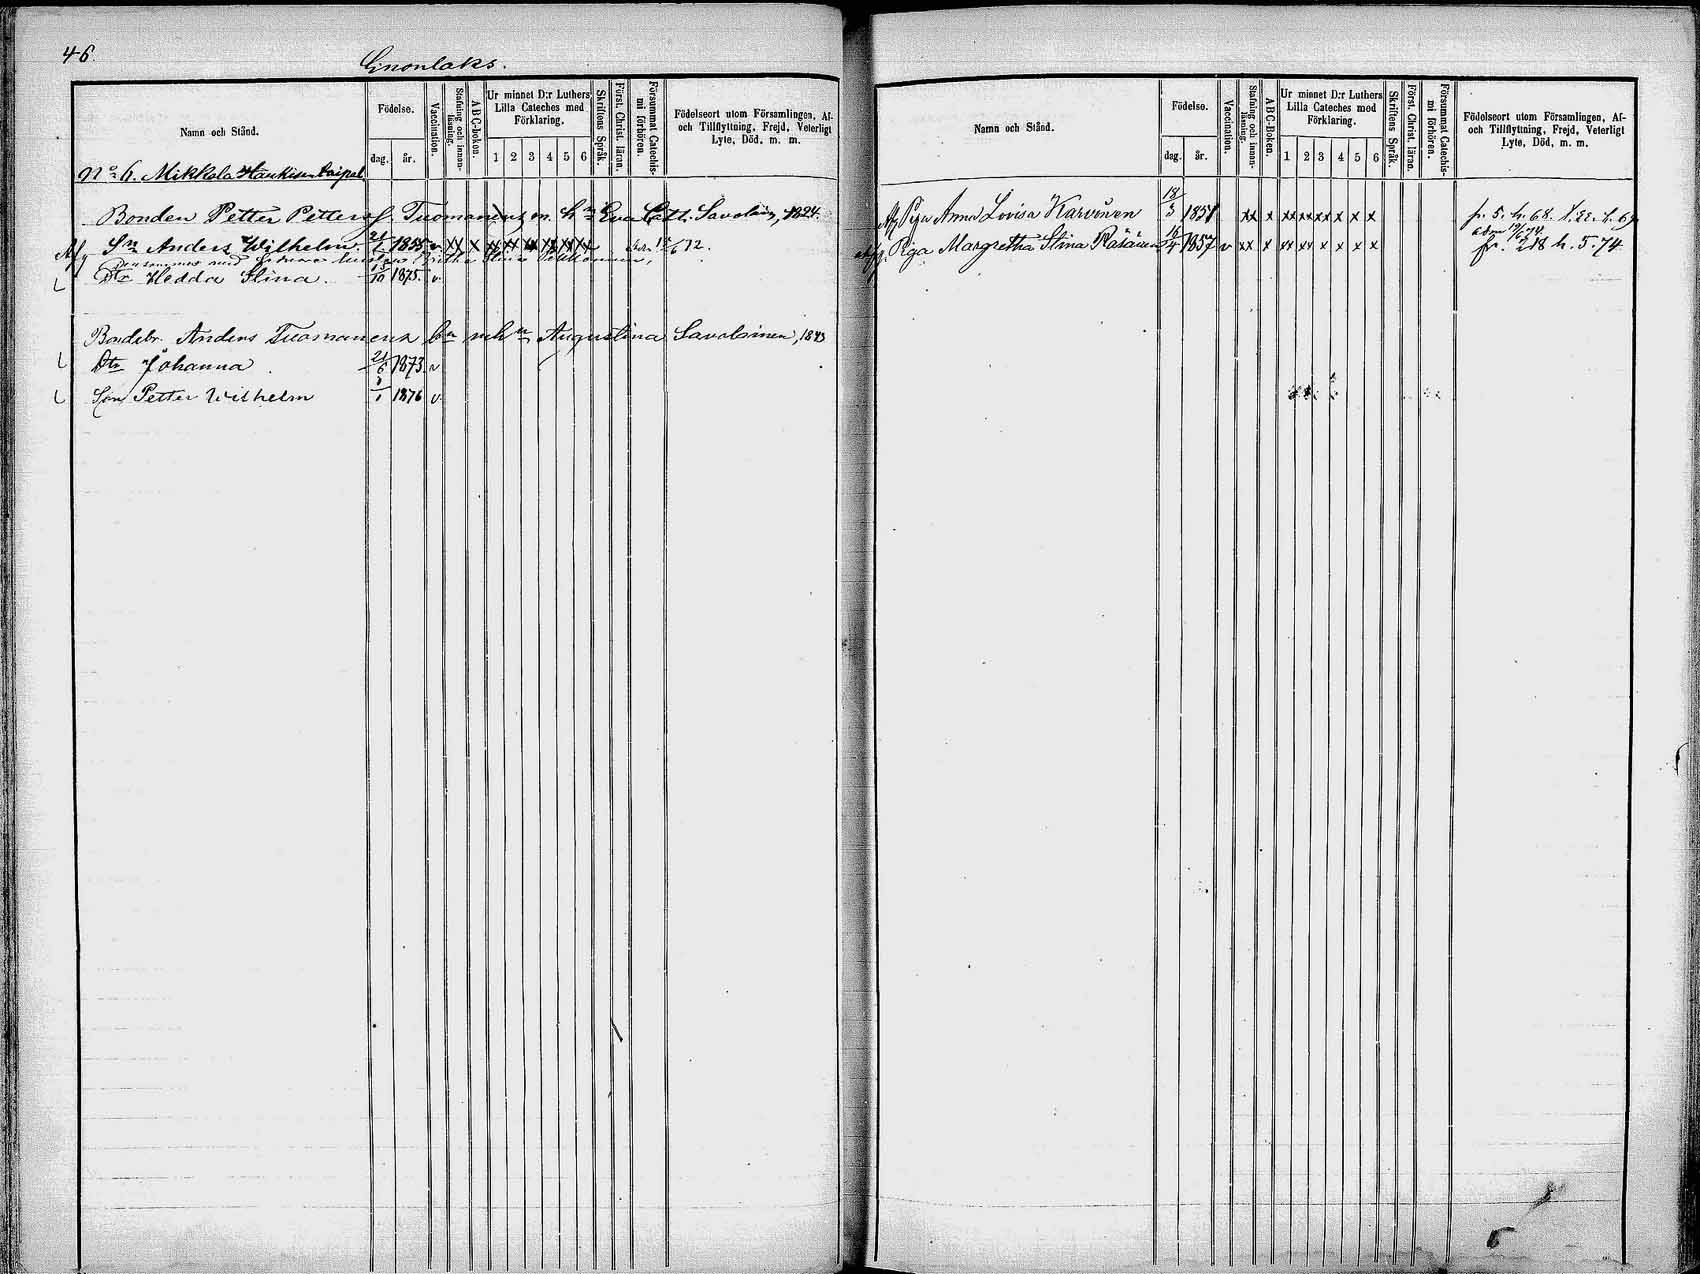 46.
Enonlaks.
Namn och Stånd.
Födelse.
dag. år.
Vaccination.
Stafning och innan-läsning.
ABC-boken.
Ur minnet D:r Luthers Lilla Cateches med Förklaring.
1 2 3 4 5 6
Skriftens Språk.
Först. Christ. läran.
Försummat Catechis-mi förhören.
Födelseort utom Församlingen, Af- och Tillflyttning, Frejd, Veterligt Lyte, Död, m. m.
No 6. Mikkola
Bonden Petter Petterss. Tuomanens m. hu Eva Cath. Savolain, 1824.
Afg Sn Anders Wilhelm. 1855 v xx x xx xx xx xx xx xx
Stina
Dtr Hedda Stina. 1875. v.
Bondebr. Anders Tuomanens bn m hu Augustina Savolainen, 1843
Dtr Johanna. 21/6 1873. v
Son Petter Wilhelm 1/1 1876 v.
Namn och Stånd.
Födelse.
dag. år.
Vaccination.
Stafning och innan-läsning.
ABC-Boken.
Ur minnet D:r Luthers Lilla Cateches med Förklaring.
1 2 3 4 5 6
Skriftens Språk.
Först. Christ. läran.
Försummat Catechis-mi förhören.
Födelseort utom Församlingen, Af- och Tillflyttning, Frejd, Veterligt Lyte, Död, m. m.
Afg Piga Anna Lovisa Karvinen 18/3 1851 xx x xx xx xx x x x fr. s. h. 68.
Afg. Piga Margretha Stina Räsänen 16/4 1857 v xx x xx xx x x x x fr. 218 h. 5. 74